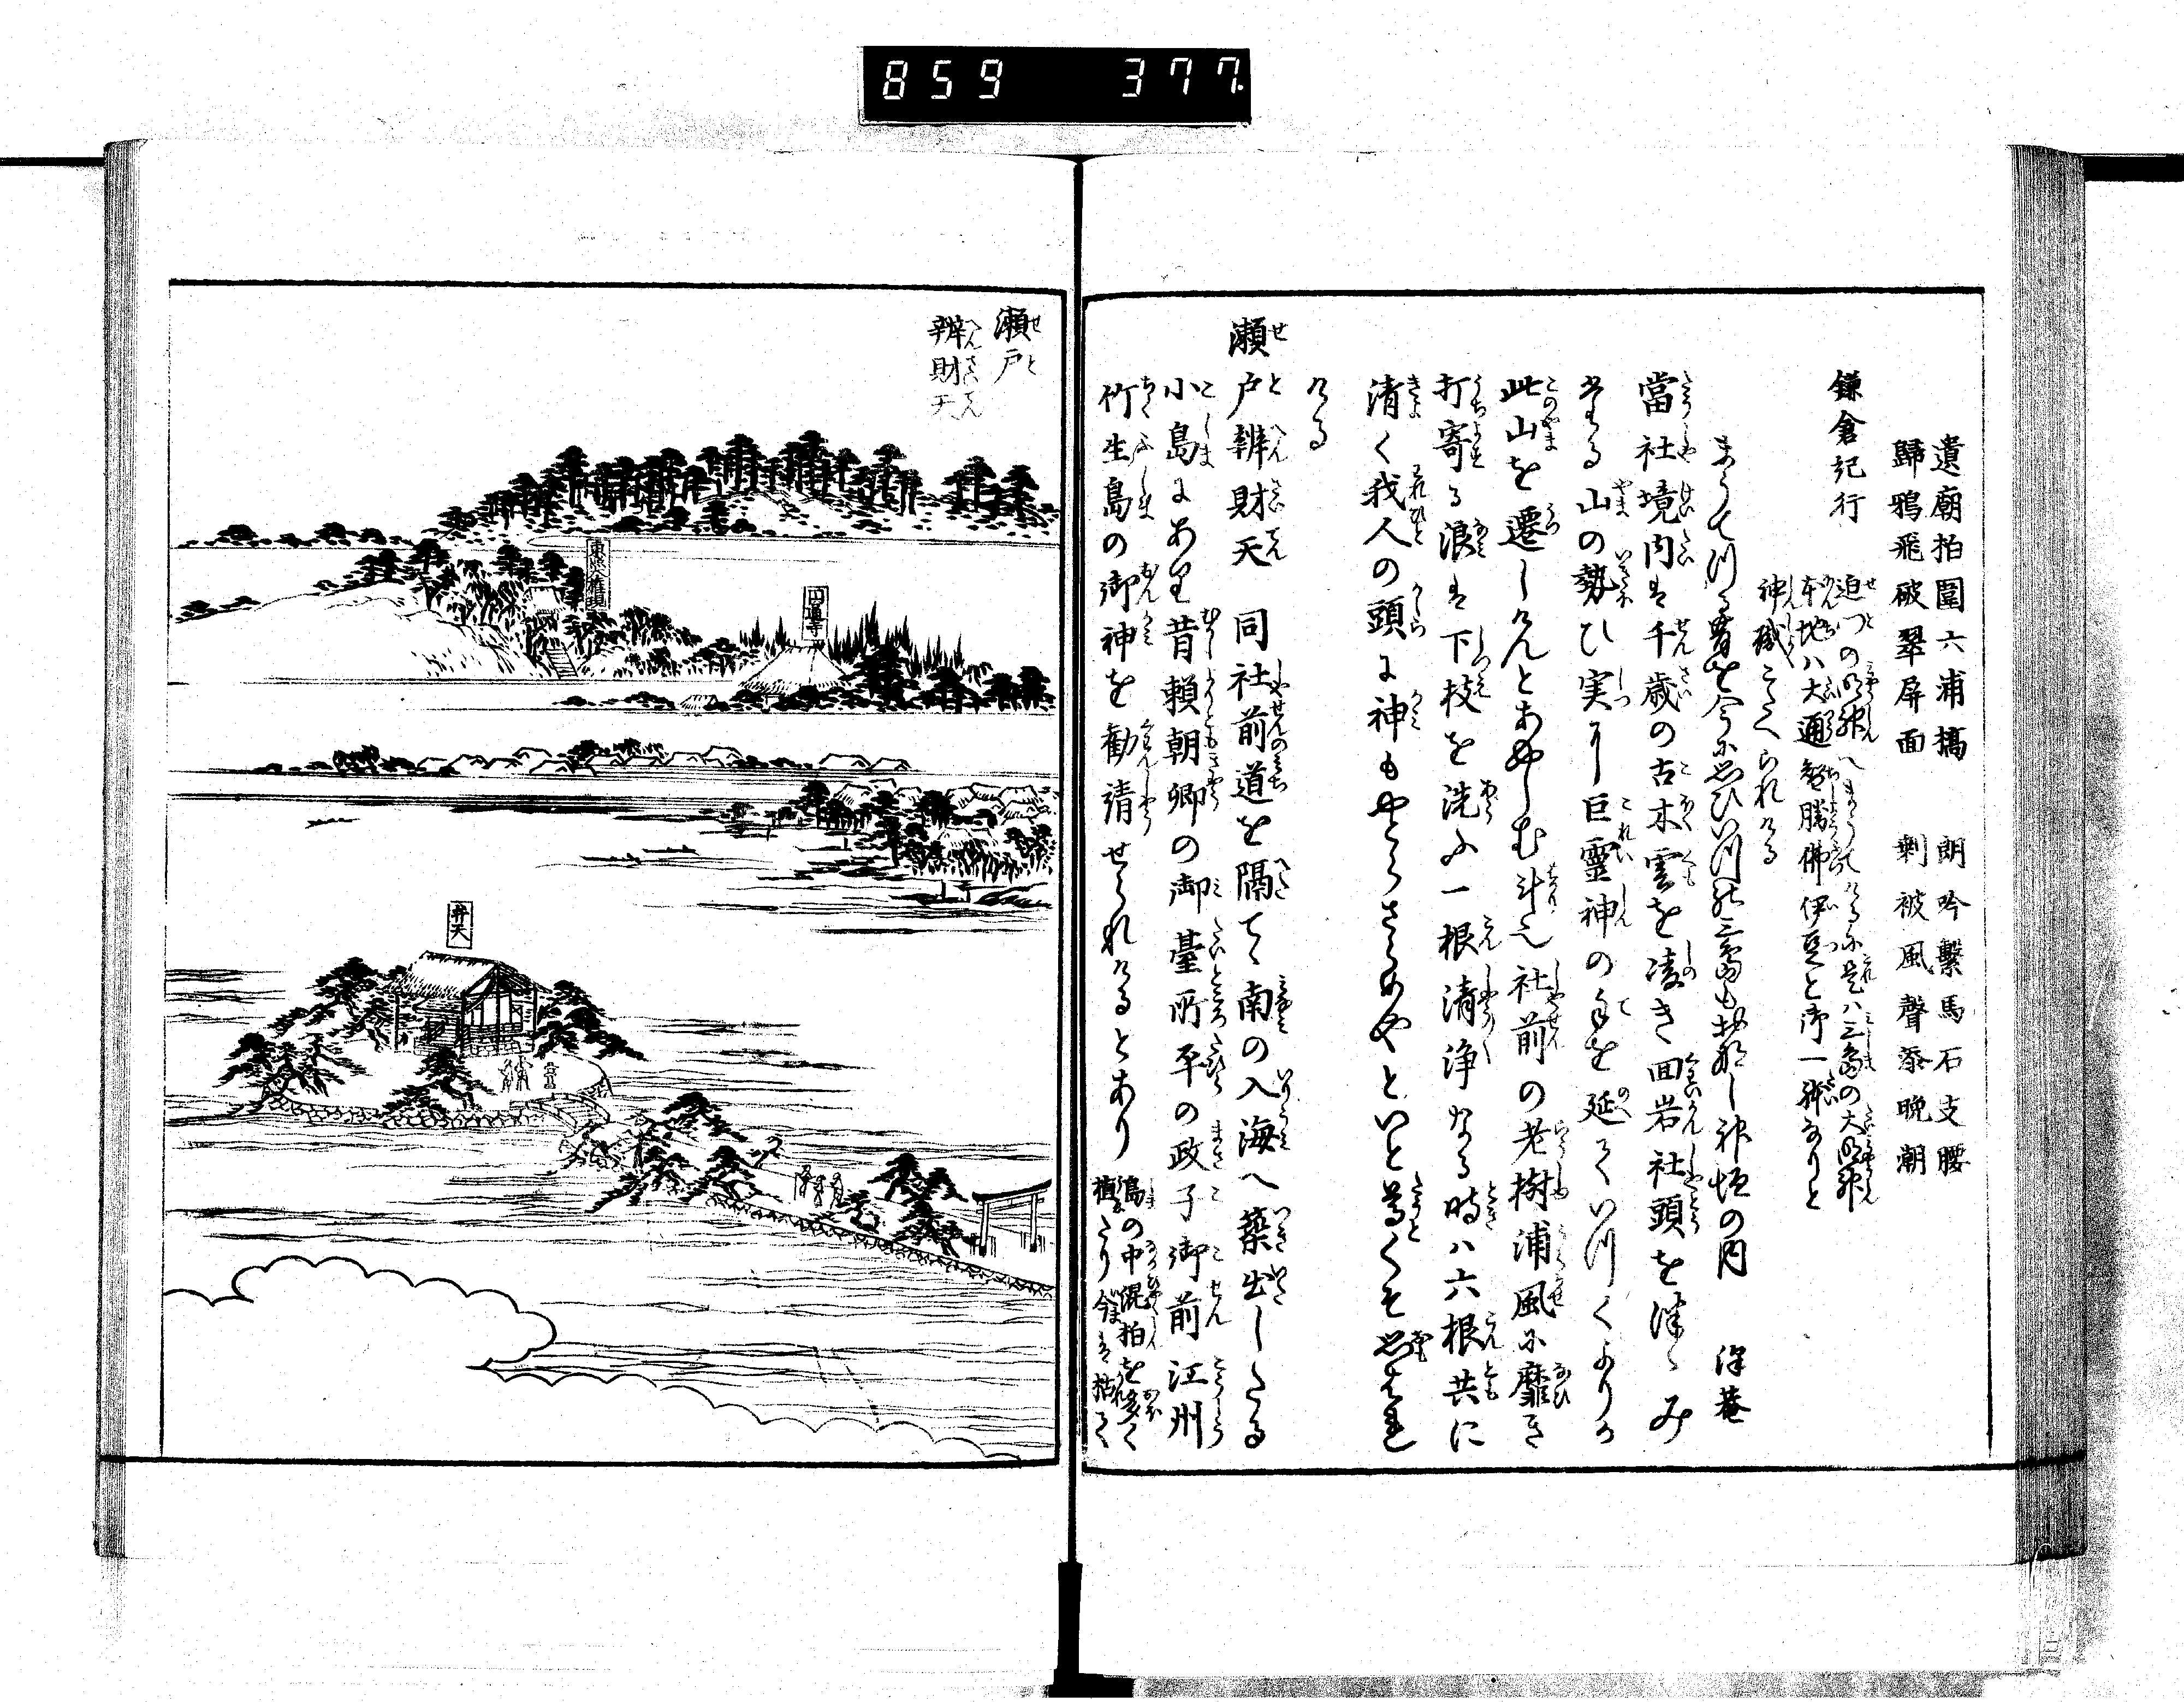 859 377
遺廟拍圍六浦橋 朗吟繫馬石支腰
歸鴉飛破翠屏面 剩被風聲添晩潮
鎌倉紀行
迫つの明神へまうてけるに是ハ三島の大明神
本地ハ大通智勝佛伊豆と御一躰なりと
神職こたへられける
まうてつる昔を今に思ひいつれ三島もおなし神垣の内
當社境内は千歳の古木雲を凌き回岩社頭を
たる山の勢ひ実に巨靈神の手を延ていつくよりか
此山を遷しけんとあやしむ斗也社前の老樹浦風に靡き
打寄る浪は下枝を洗ふ一根清浄なる時ハ六根共に
清く我人の頭に神もやとらさらめやといと尊くそ思はれ
ける
瀬戸辨財天 同社前道を隔てゝ南の入海へ築出したる
小島にあり昔頼朝卿の御臺所平の政子御前江州
竹生島の御神を勸請せられけるとあり
島の中混拍を多く
植たり今は枯て
瀬戸
辨財天
東照大権現
円通寺
弁天